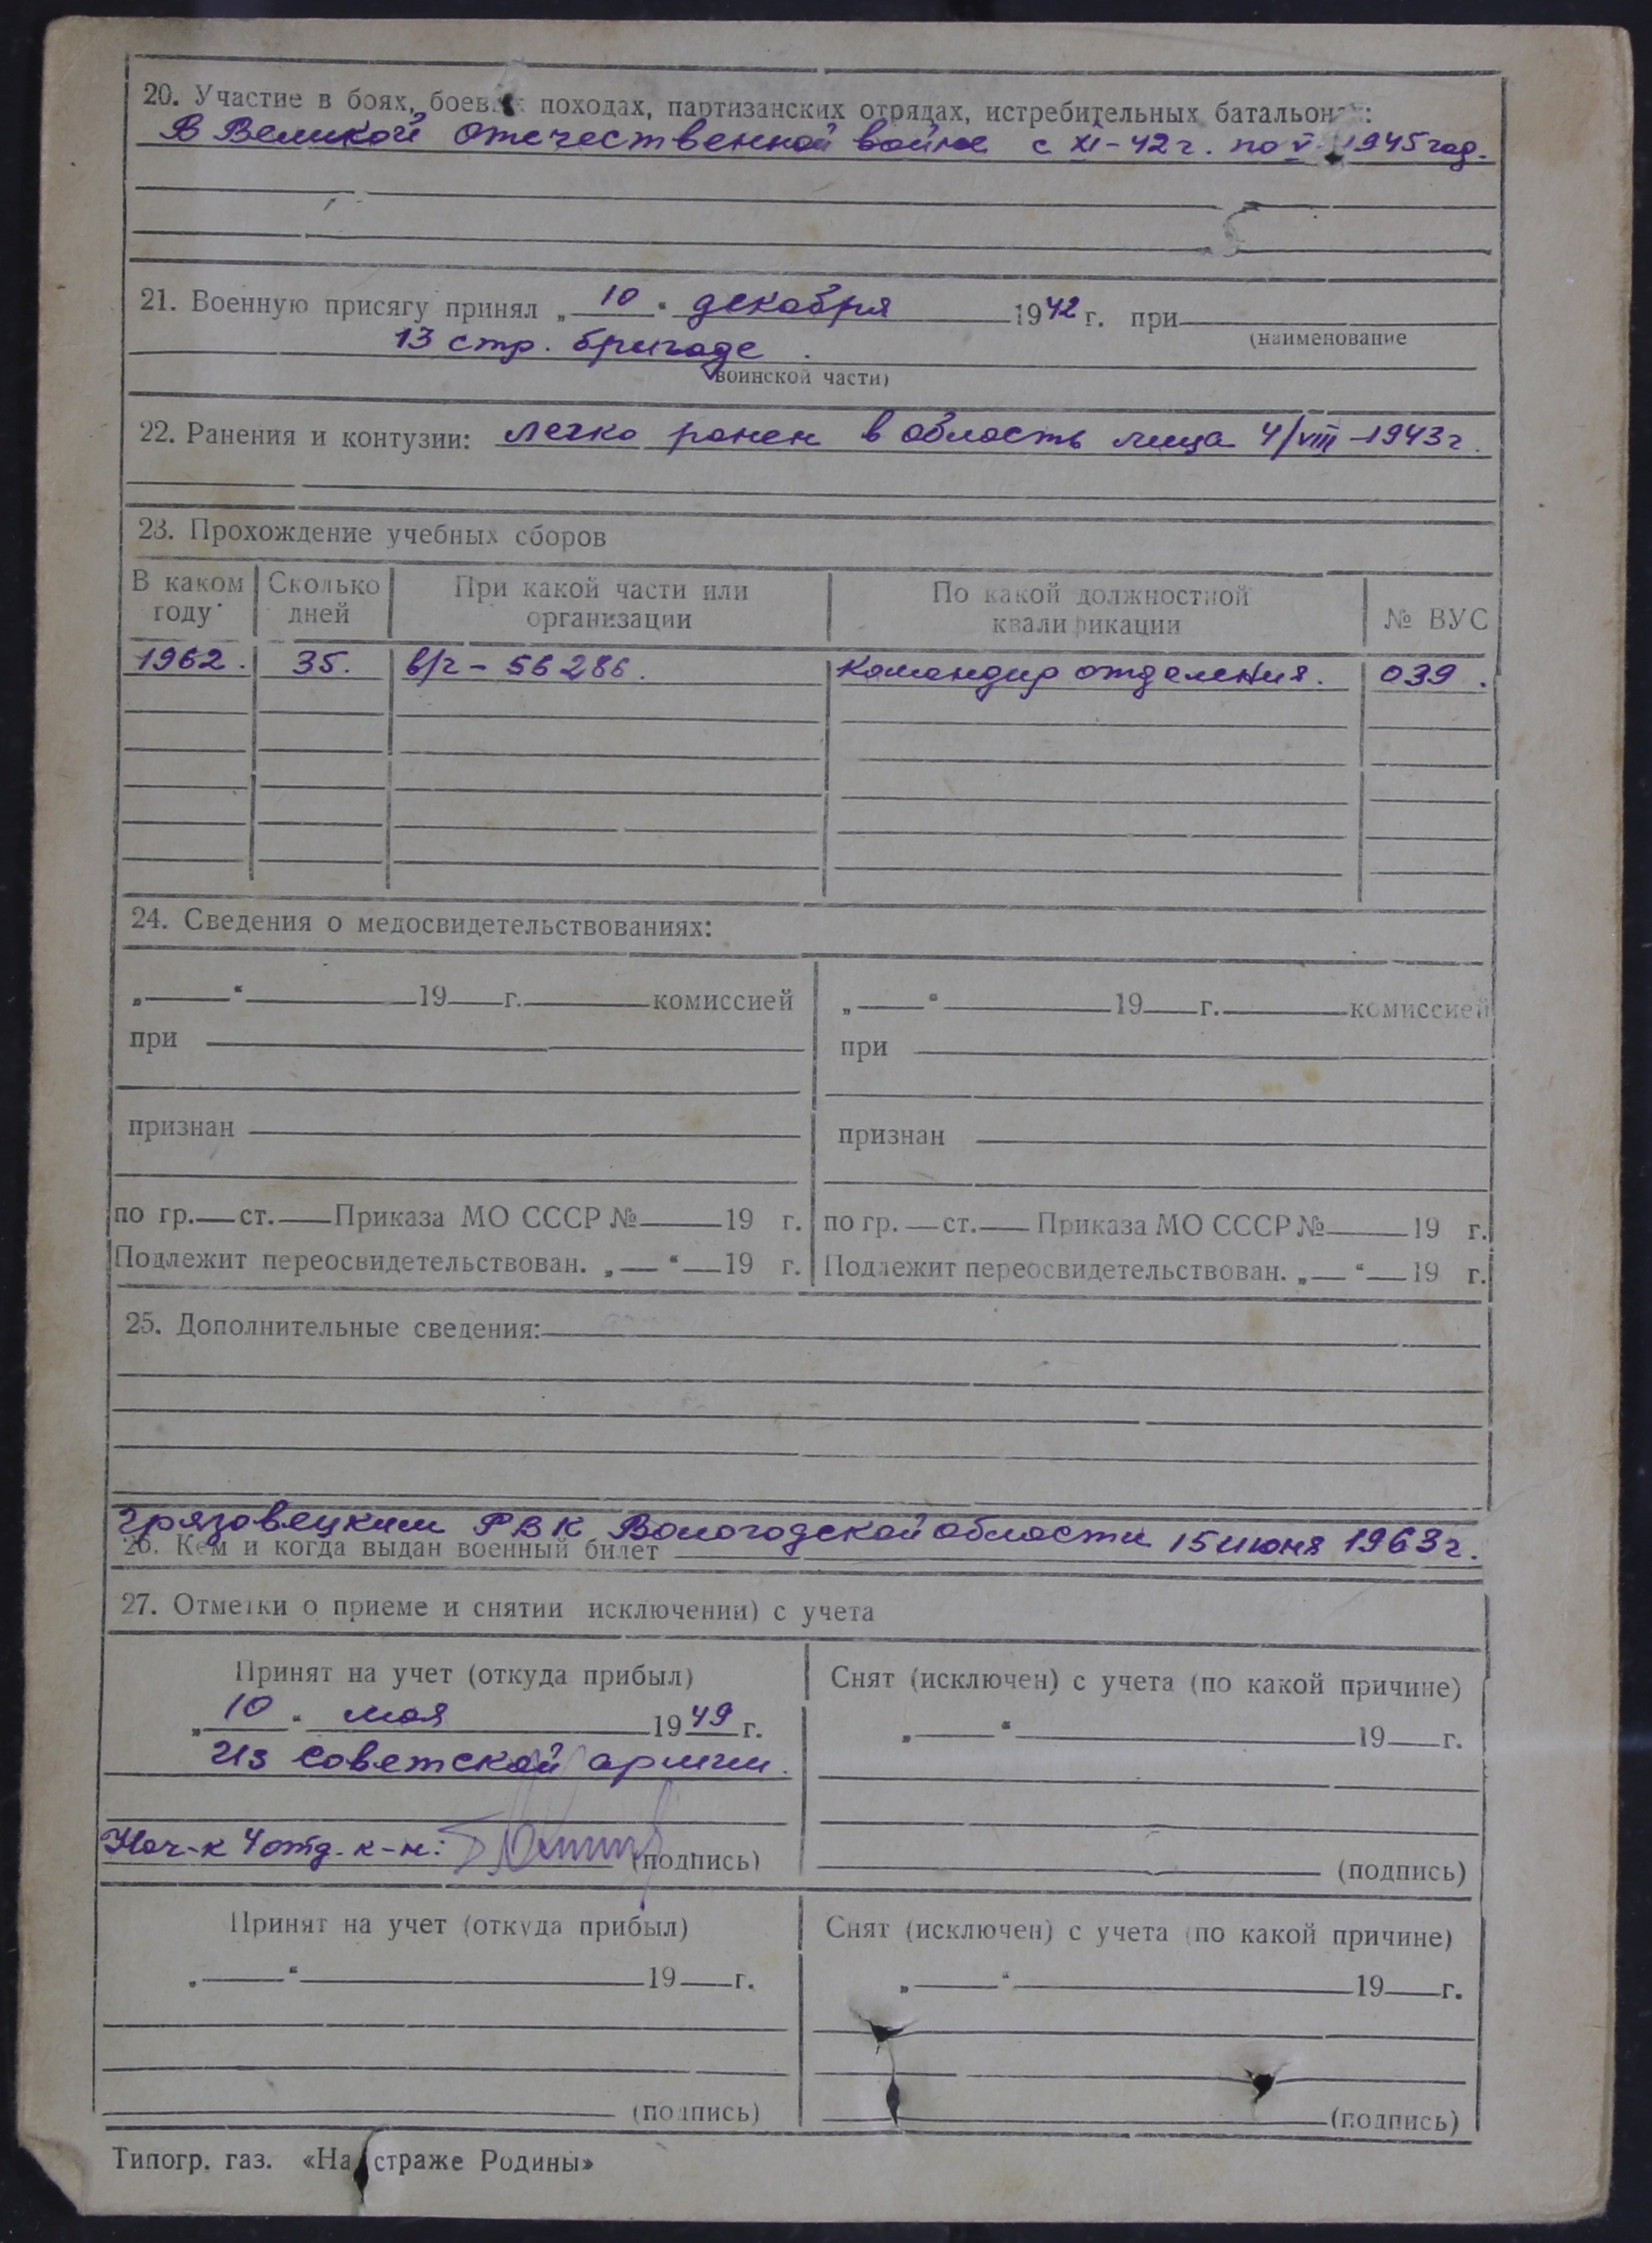 20. Участие в боях, боев походах, партизанских отрядах, истребительных батальонах:
В Великой отечественной войне с XI-42г. по V 1945 год.
21. Военную присягу принял „ 10 “ декабря 1942 г. при
(наименование
13 стр. бригаде.
воинской части)
22. Ранения и контузии: легко ранен в область лица 4/VIII-1943г.
23. Прохождение учебных сборов
В каком году | Сколько дней | При какой части или организации | По какой должностной квалификации | № ВУС
1962. | 35. | в/ч - 56286. | Командир отделения. | 039.
24. Сведения о медосвидетельствованиях:
„ “ 19 г. комиссией | „ “ 19 г. комиссией
при | при
признан | признан
по гр. ст. Приказа МО СССР № 19 г. | по гр. ст. Приказа МО СССР № 19 г.
Подлежит переосвидетельствован. „ “ 19 г. | Подлежит переосвидетельствован. „ “ 19 г.
25. Дополнительные сведения:
Грязовецким РВК Вологодской области 15 июня 1963г.
26. Кем и когда выдан военный билет
27. Отметки о приеме и снятии исключении) с учета
Принят на учет (откуда прибыл) | Снят (исключен) с учета (по какой причине)
„ 10 “ мая 1949 г. | „ “ 19 г.
Из советской армии.
Нач-к 4 отд. к-н: (подпись) | (подпись)
Принят на учет (откуда прибыл) | Снят (исключен) с учета (по какой причине)
„ “ 19 г. | „ “ 19 г.
(подпись) | (подпись)
Типогр. газ. «На страже Родины»